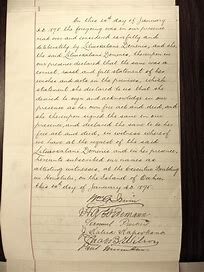 On this 24th day of January
A.D. 1895 the foregoing was in our
presence read over and considered carefully and
deliberately by Liliuokalani Dominis, and she,
the said Liliuokalani Dominis, thereupon in
our presence declared that the same was a
correct, exact and full statement of her
wishes and acts in the premises, which
statement she declared to us that she
desired to sign and acknowledge in our
presence as her own free act and deed, and
she thereupon signed the same in our
presence and declared the same to be her
free act and deed, in witness whereof
we have at the request of the said
Liliuokalani Dominis and in her presence,
hereunto subscribed our names as
attesting witnesses, at the Executive Building
in Honolulu, on the Island of Oahu,
this 24th day of January A.D. 1895.
Wm G. Irwin
H. A. Widemann
Samuel Parker
S. Kalua Kookano
Charles B. Wilson
Paul Neumann